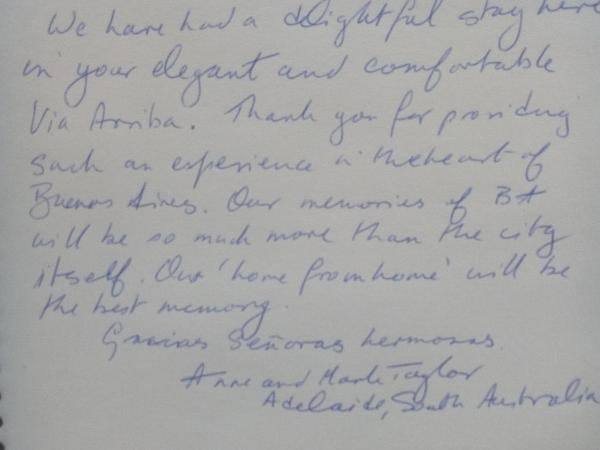 We have had a delightful stay here
in your elegant and comfortable
Via Arriba. Thank you for providing
such an experience in the heart of
Buenos Aires. Our memories of BA
will be so much more than the city
itself. Our 'home from home' will be
the best memory.
Gracias Señoras hermosas.
Anne and Mark Taylor
Adelaide, South Australia